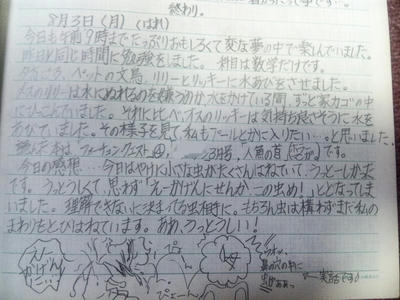 終わり。
8月3日(月)(はれ)
今日も午前9時までたっぷりおもしろくて変な夢の中で楽しんでいました。
昨日と同じ時間に勉強をしました。科目は数学だけです。
ペットの文鳥、リリーとリッキーに水あびをさせました。
メスのリリーは水にぬれるのを嫌うのか、水をかけている間、ずっと家カゴの中
にひっこんでいました。それに比べ、オスのリッキーは気持ち良さそうに水を
あびていました。その様子を見て私もプールとかに入りたい…。と思いました。
読んだ本は「フォーチュンクエスト④」、3月号、「人魚の首」です。
今日の感想…今日はやけに小さな虫がたくさんはねていて、うっとーしか
です。うっとうしくて思わず「えーかげんにせんかこの虫め!」とどなってしま
いました。理解できないに決まってる虫相手に。もちろん虫は構わずまだ私の
まわりをとびはねています。ああ、うっとうしい!
ぴょん
ぴょーん
実話です